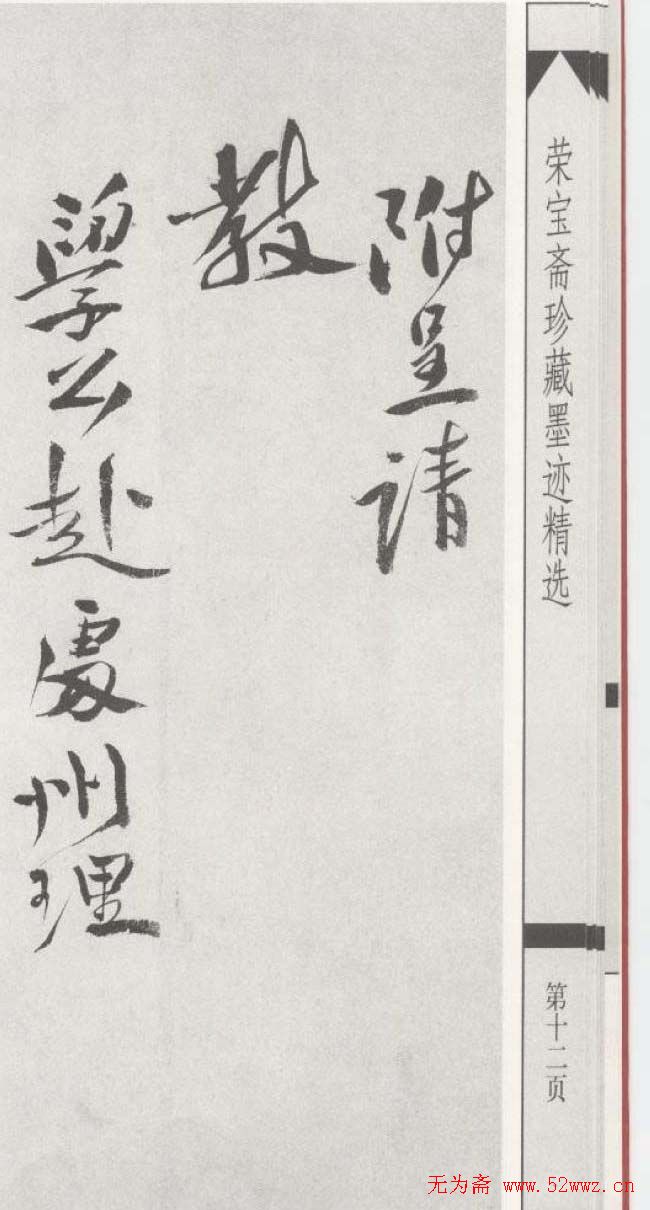 荣宝斋珍藏墨迹精选
第十二页
附呈请
教
學公赴處州理
无为斋 www.52wwz.cn